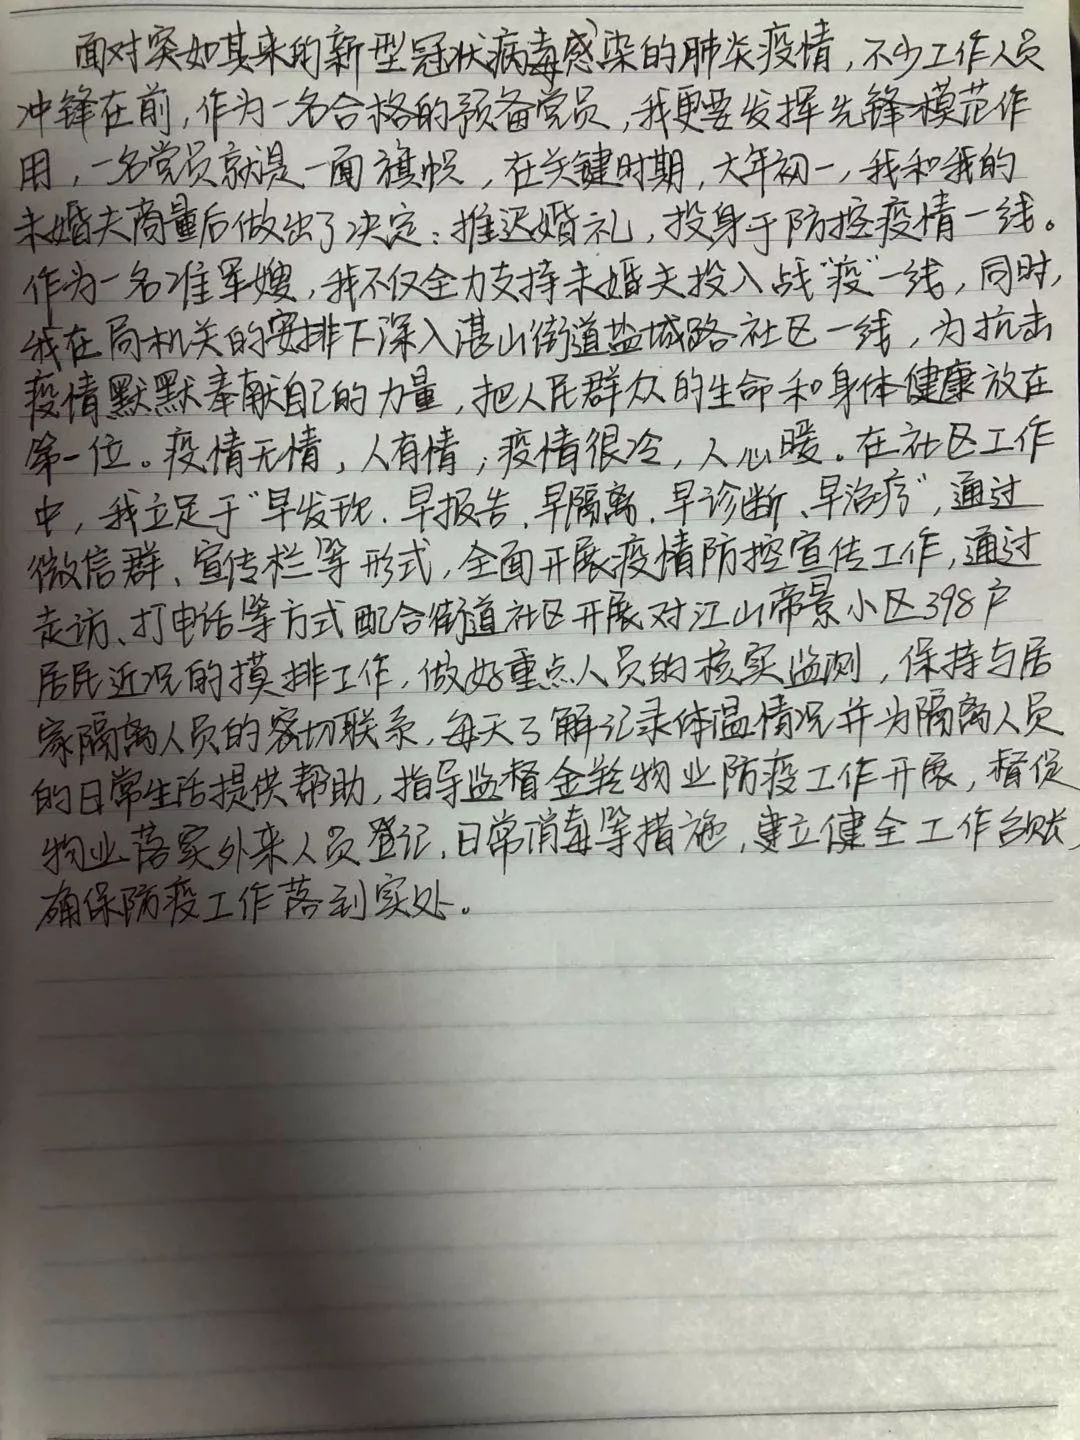 面对突如其来的新型冠状病毒感染的肺炎疫情，不少工作人员
冲锋在前，作为一名合格的预备党员，我更要发挥先锋模范作
用，一名党员就是一面旗帜，在关键时期，大年初一，我和我的
未婚夫商量后做出了决定：推迟婚礼，投身于防控疫情一线。
作为一名准军嫂，我不仅全力支持未婚夫投入战“疫”一线，同时，
我在局机关的安排下深入湛山街道盐城路社区一线，为抗击
疫情默默奉献自己的力量，把人民群众的生命和身体健康放在
第一位。疫情无情，人有情；疫情很冷，人心暖。在社区工作
中，我立足于“早发现、早报告、早隔离、早诊断、早治疗”，通过
微信群、宣传栏等形式，全面开展疫情防控宣传工作，通过
走访、打电话等方式配合街道社区开展对江山帝景小区398户
居民近况的摸排工作，做好重点人员的核实监测，保持与居
家隔离人员的密切联系，每天了解记录体温情况并为隔离人员
的日常生活提供帮助，指导监督金羚物业防疫工作开展，督促
物业落实外来人员登记，日常消毒等措施，建立健全工作台账，
确保防疫工作落到实处。